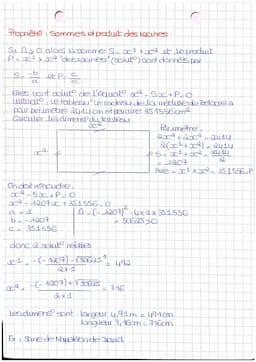 Propriété : Sommes et produit des racines
Si Δ ≥ 0 alors la somme S = x¹ + x² et le produit
P = x¹ x x² des racines (solut°) sont donnés par
S = -b/a et P = c/a
Elles sont solut° de l'équat° x² - Sx + P = 0
pour périmètre 2414 cm et pour aire 351556 cm²
Calculer les dimens° du tableau
x²
x¹
Périmètre :
2x¹ + 2x² = 2414
2(x¹ + x²) = 2414
S = x¹ + x² = 2414/2
= 1207
Aire = x¹ x x² = 351556 = P
On doit résoudre :
x² - Sx + P = 0
x² - 1207x + 351556 = 0
a = 1
b = -1207
c = 351556
Δ = (-1207)² - 4 x 1 x 351556
= 50625 > 0
donc 2 solut° réelles
x¹ = -(-1207) - √50625 / 2x1 = 491
x² = -(-1207) + √50625 / 2x1 = 716
Les dimens° sont : largeur 4,91m = 491cm
longueur 7,16cm = 716cm
Ex : Sacre de Napoléon de David